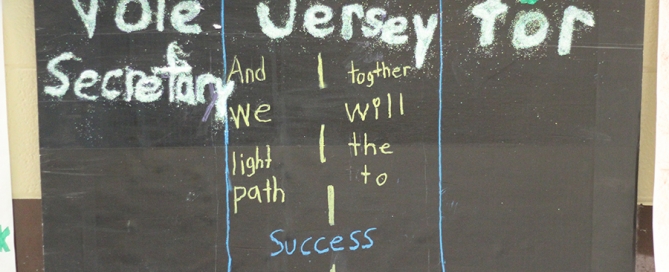 Vote. Jersey for
Secretary
And together
we will
light the
path to
Success